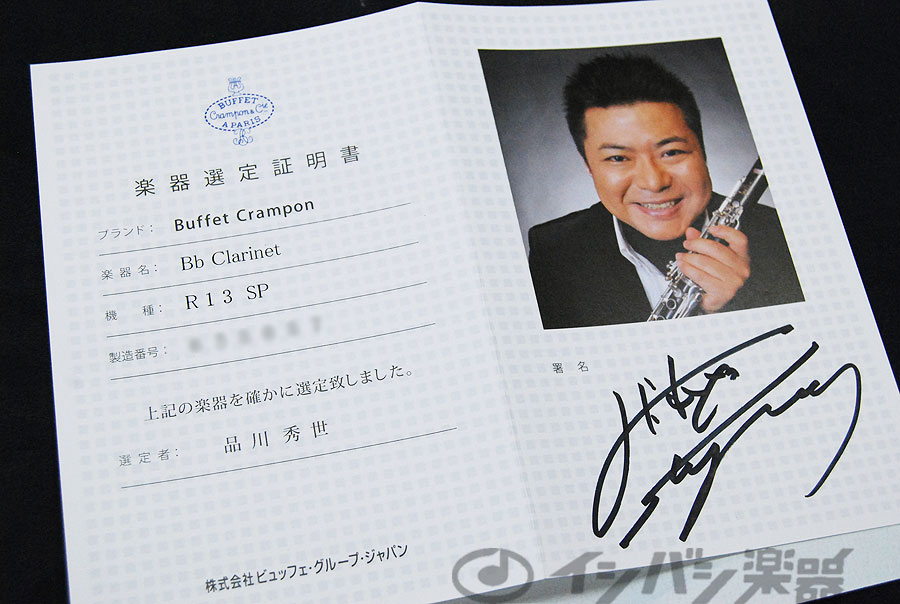 BUFFET
Crampon & Cie
A PARIS
楽器選定証明書
ブランド: Buffet Crampon
楽器名: Bb Clarinet
機種: R13 SP
製造番号:
上記の楽器を確かに選定致しました。
選定者: 品川秀世
株式会社ビュッフェ・グループ・ジャパン
署名
イシバシ楽器